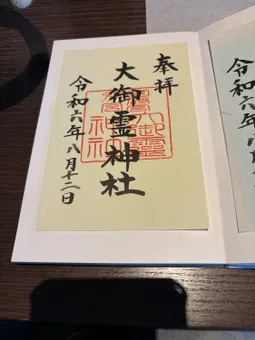 奉拝
大御霊神社
令和六年八月十二日
令和六年